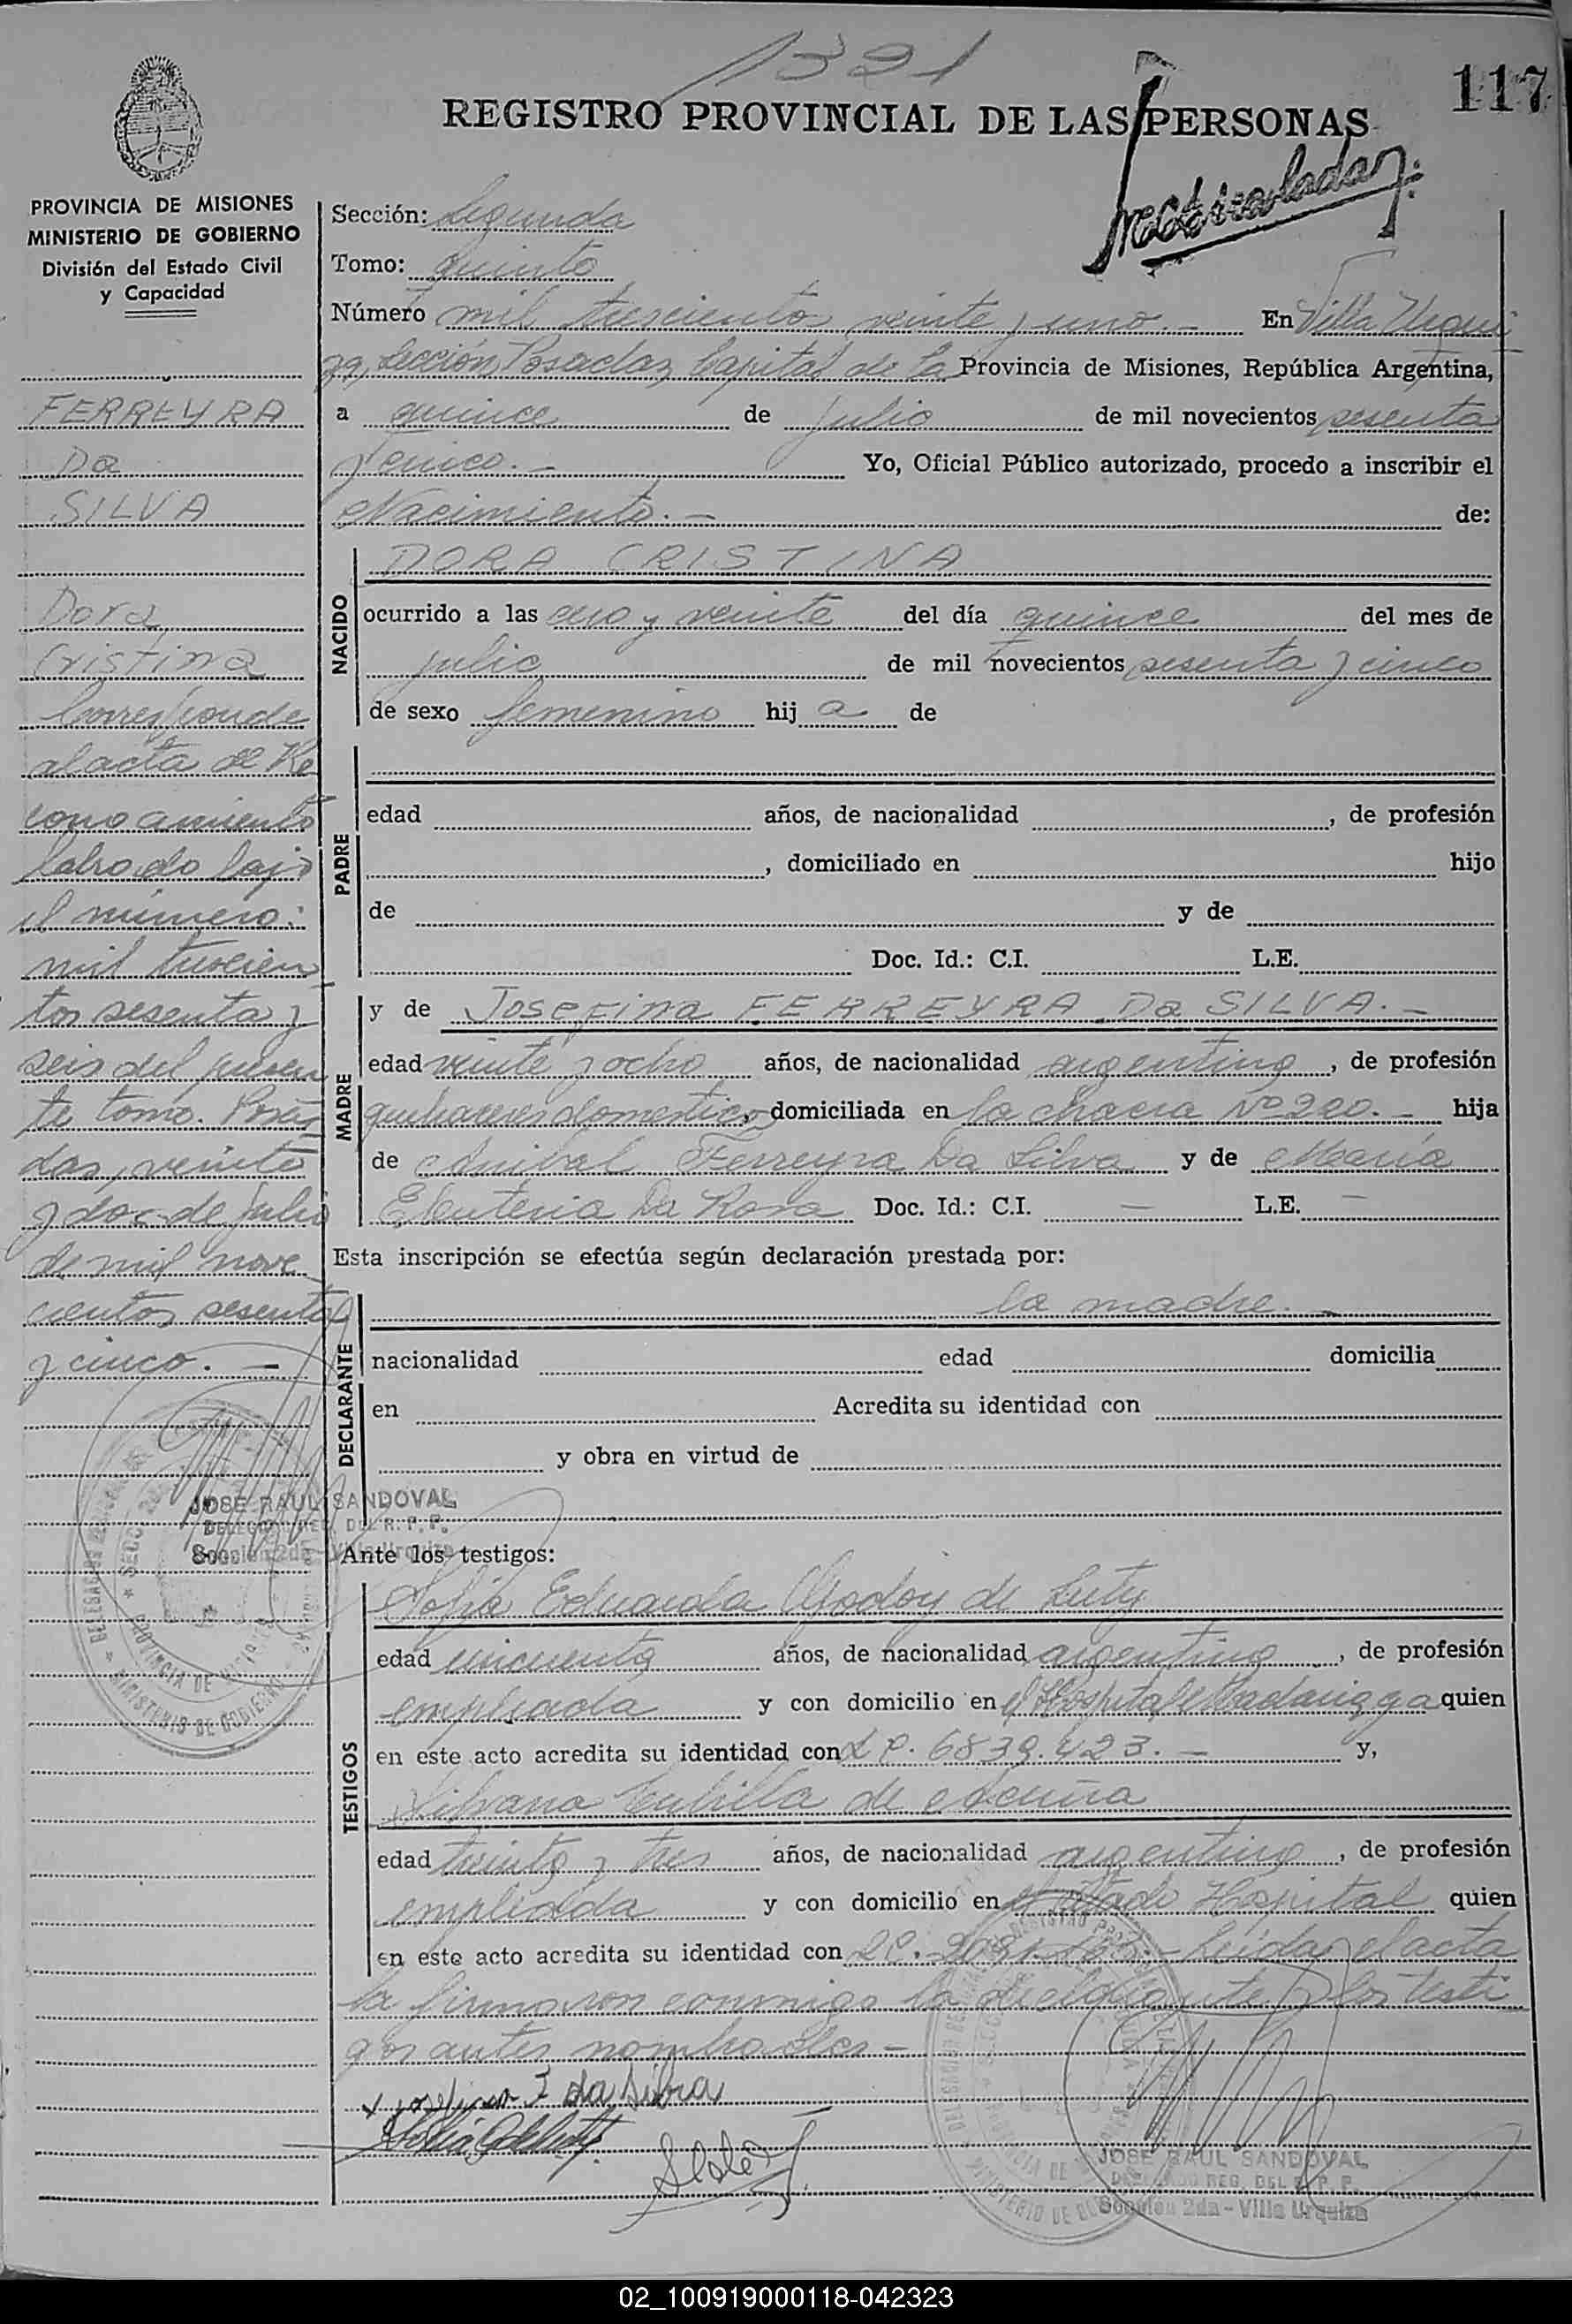 1321
117
REGISTRO PROVINCIAL DE LAS PERSONAS
PROVINCIA DE MISIONES
MINISTERIO DE GOBIERNO
División del Estado Civil
y Capacidad
FERREYRA
Da
SILVA
Dora
Cristina
Corresponde
al acta de Re
conocimiento
labrado bajo
el número:
mil trescien
tos sesenta y
seis del presen
te tomo. Posa
das, veinte
y dos de julio
de mil nove
cientos sesenta
y cinco. —
JOSE RAUL SANDOVAL
DELEGADO REG. DEL R. P. P.
Sección 2da - Villa Urquiza
Sección: Segunda
Tomo: quinto
Número mil trescientos veinte y uno. — En Villa Urqui
za, Sección, Posadas, Capital de la Provincia de Misiones, República Argentina,
a quince de julio de mil novecientos sesenta
y cinco. — Yo, Oficial Público autorizado, procedo a inscribir el
Nacimiento. — de:
NACIDO
DORA CRISTINA
ocurrido a las cero y veinte del día quince del mes de
julio de mil novecientos sesenta y cinco
de sexo femenino hij a de
PADRE
edad años, de nacionalidad , de profesión
, domiciliado en hijo
de y de
Doc. Id.: C.I. L.E.
MADRE
y de Josefina FERREYRA Da SILVA. —
edad veinte y ocho años, de nacionalidad argentina, de profesión
quehaceres domesticos, domiciliada en la chacra Nº 220. — hija
de Anibal Ferreyra Da Silva y de María
Eleuteria Da Rosa Doc. Id.: C.I. — L.E. —
Esta inscripción se efectúa según declaración prestada por:
DECLARANTE
la madre. —
nacionalidad edad domicilia
en Acredita su identidad con
y obra en virtud de
Ante los testigos:
TESTIGOS
Sofía Eduarda Godoy de
edad cincuenta años, de nacionalidad argentina, de profesión
empleada y con domicilio en el Hospital Madariaga quien
en este acto acredita su identidad con L C. 6839.423. — y,
Silvana Cubilla de
edad treinta y tres años, de nacionalidad argentina, de profesión
empleada y con domicilio en el citado Hospital quien
en este acto acredita su identidad con LC. Leída el acta
la firmaron conmigo la declarante y los testi
gos antes nombrados —
Josefina F da Silva
JOSE RAUL SANDOVAL
DELEGADO REG. DEL R. P. P.
Sección 2da - Villa Urquiza
02_100919000118-042323